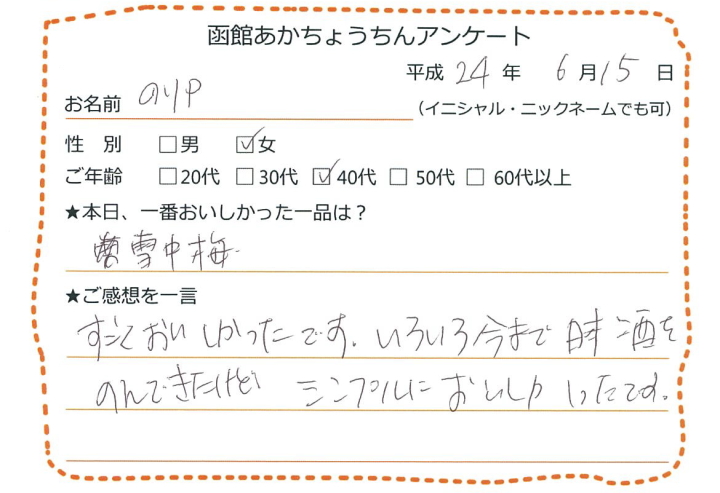 函館あかちょうちんアンケート
平成 24 年 6 月 15 日
お名前 のりP (イニシャル・ニックネームでも可)
性 別 □男 ☑女
ご年齢 □20代 □30代 ☑40代 □50代 □60代以上
★本日、一番おいしかった一品は？
雪中梅
★ご感想を一言
すごくおいしかったです。いろいろ今まで日本酒を
のんできたけど シンプルにおいしかったです。